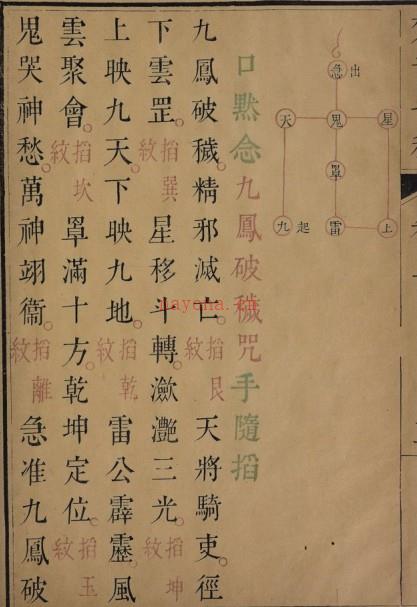 急 出
天 鬼 星
罩
九 起 雷 上
口黙念九鳳破穢咒手隨掐
九鳳破穢。精邪滅亡。掐艮紋 天將騎吏。徑
下雲罡。掐巽紋 星移斗轉。瀲灧三光。掐坤紋
上映九天。下映九地。掐乾紋 雷公霹靂。風
雲聚會。掐坎紋 罩滿十方。乾坤定位。掐玉紋
鬼哭神愁。萬神翊衞。掐離紋 急准九鳳破
nayona.cn